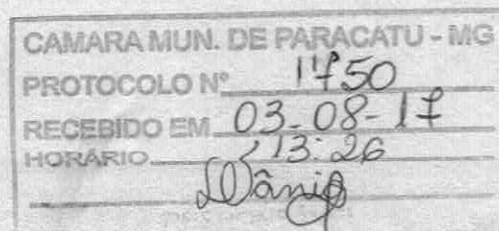 CAMARA MUN. DE PARACATU - MG
PROTOCOLO Nº 1750
RECEBIDO EM 03-08-17
HORÁRIO 13:26
Dânia